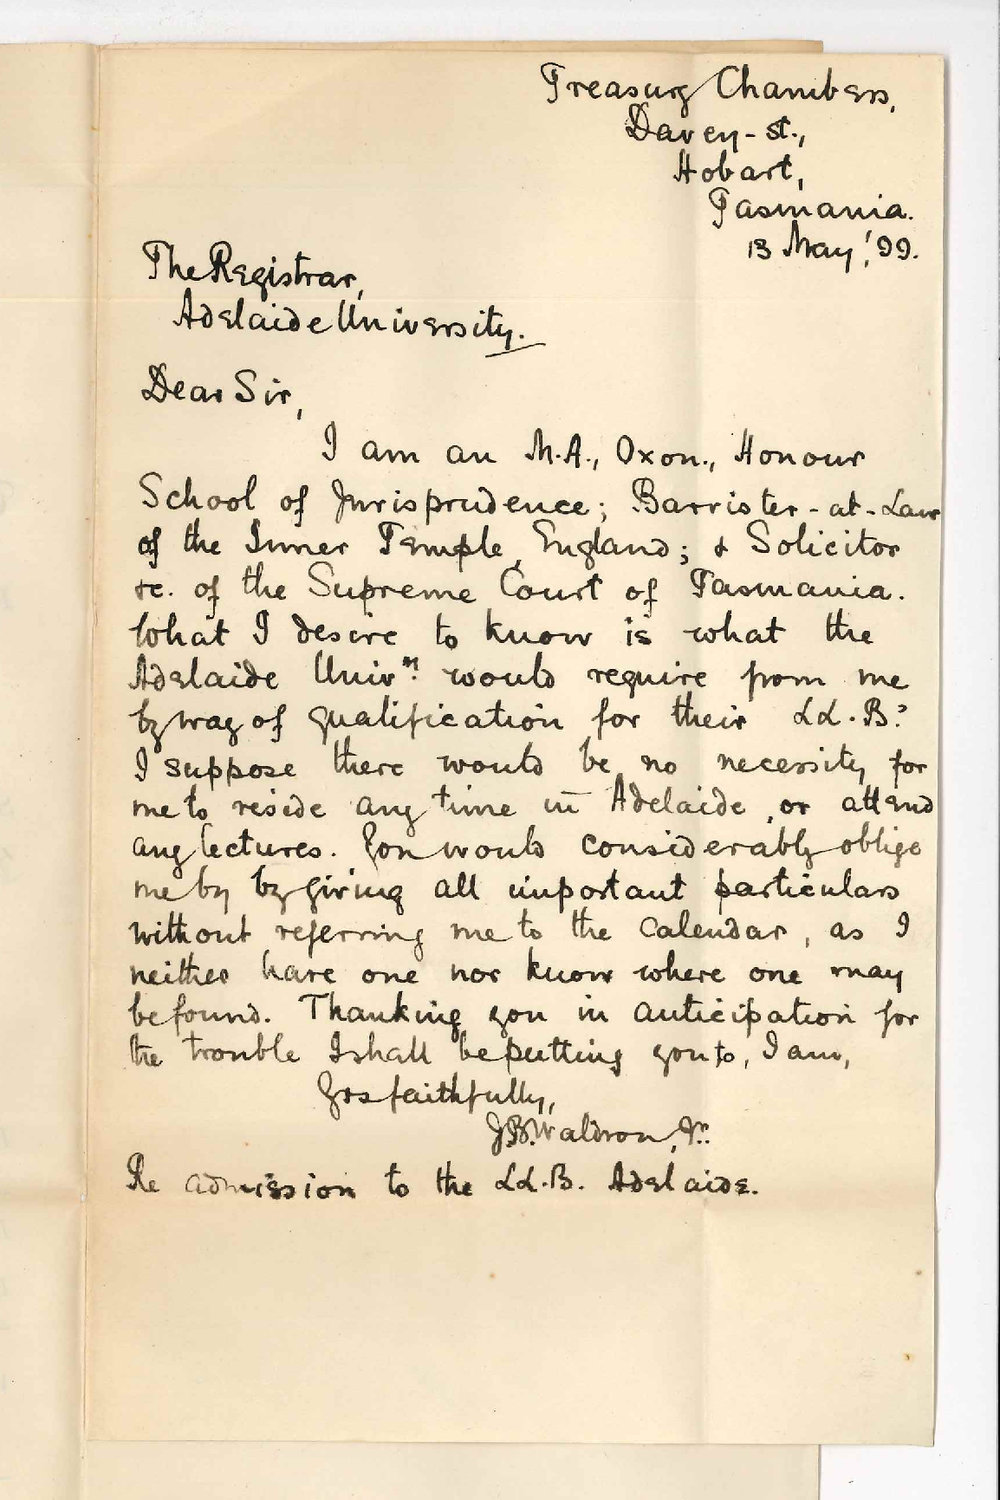 Treasury Chambers,
Davey-st.,
Hobart,
Tasmania.
13 May, '99.
The Registrar,
Adelaide University.
Dear Sir,
I am an M.A., Oxon., Honour
School of Jurisprudence; Barrister-at-Law
of the Inner Temple, England; & Solicitor
&c. of the Supreme Court of Tasmania.
What I desire to know is what the
Adelaide Univy. would require from me
by way of qualification for their LL.B.?
I suppose there would be no necessity for
me to reside any time in Adelaide, or attend
any lectures. You would considerably oblige
me by by giving all important particulars
without referring me to the Calendar, as I
neither have one nor know where one may
be found. Thanking you in anticipation for
the trouble I shall be putting you to, I am,
Yrs faithfully,
J.B. Waldron, Jr.
Re admission to the LL.B. Adelaide.